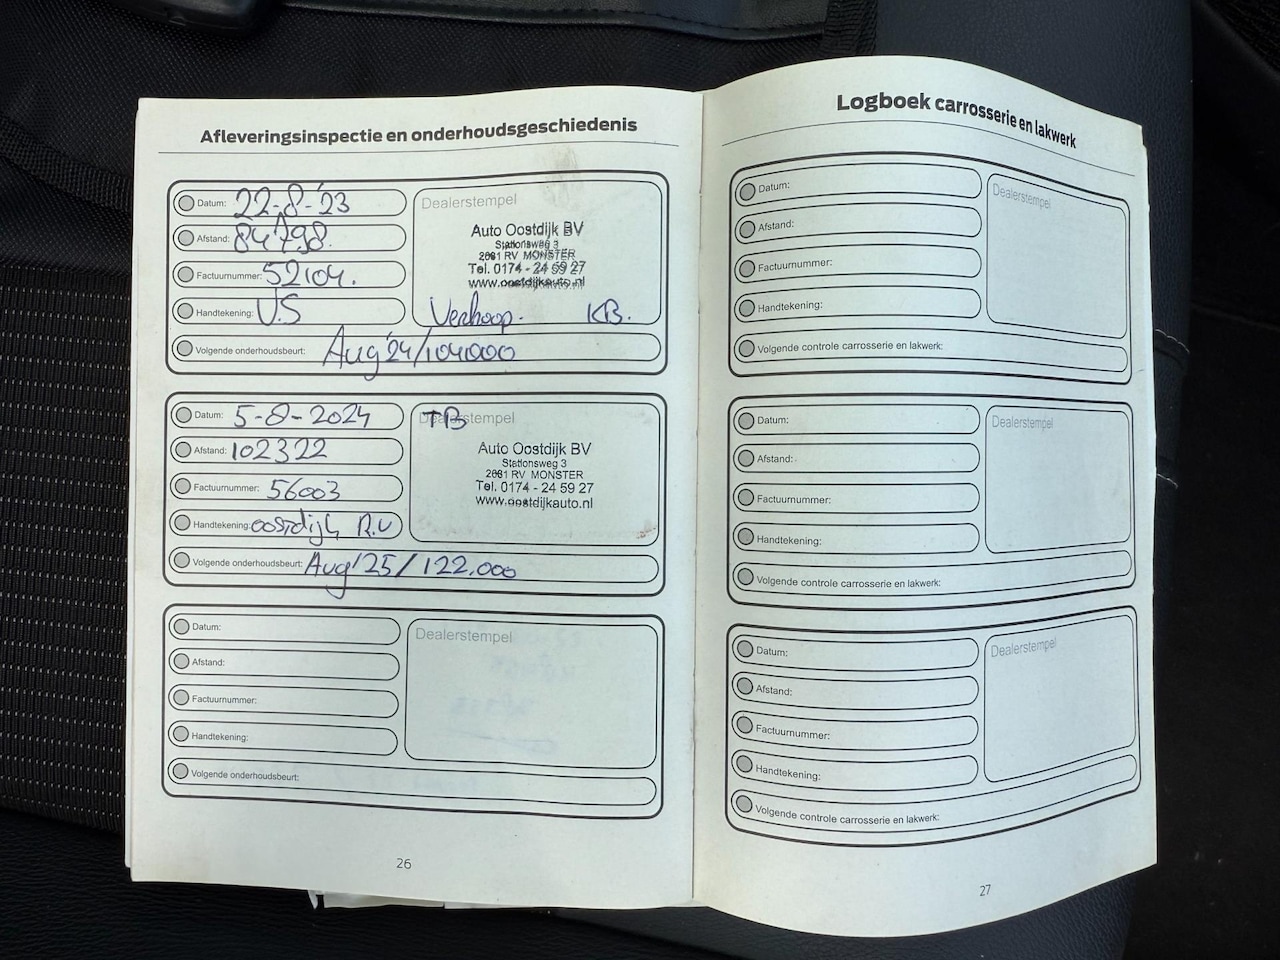 Afleveringsinspectie en onderhoudsgeschiedenis
Datum: 22-8-'23
Afstand: 84798.
Factuurnummer: 52104.
Handtekening: V.S
Dealerstempel
Auto Oostdijk BV
Stationsweg 3
2681 RV MONSTER
Tel. 0174 - 24 59 27
www.oostdijkauto.nl
Verkoop. KB.
Volgende onderhoudsbeurt: Aug'24/104000
Datum: 5-8-2024
Afstand: 102322
Factuurnummer: 56003
Handtekening: oostdijk R.v
Dealerstempel
TB
Auto Oostdijk BV
Stationsweg 3
2681 RV MONSTER
Tel. 0174 - 24 59 27
www.oostdijkauto.nl
Volgende onderhoudsbeurt: Aug'25/122.000
Datum:
Afstand:
Factuurnummer:
Handtekening:
Dealerstempel
Volgende onderhoudsbeurt:
26
Logboek carrosserie en lakwerk
Datum:
Afstand:
Factuurnummer:
Handtekening:
Dealerstempel
Volgende controle carrosserie en lakwerk:
Datum:
Afstand:
Factuurnummer:
Handtekening:
Dealerstempel
Volgende controle carrosserie en lakwerk:
Datum:
Afstand:
Factuurnummer:
Handtekening:
Dealerstempel
Volgende controle carrosserie en lakwerk:
27